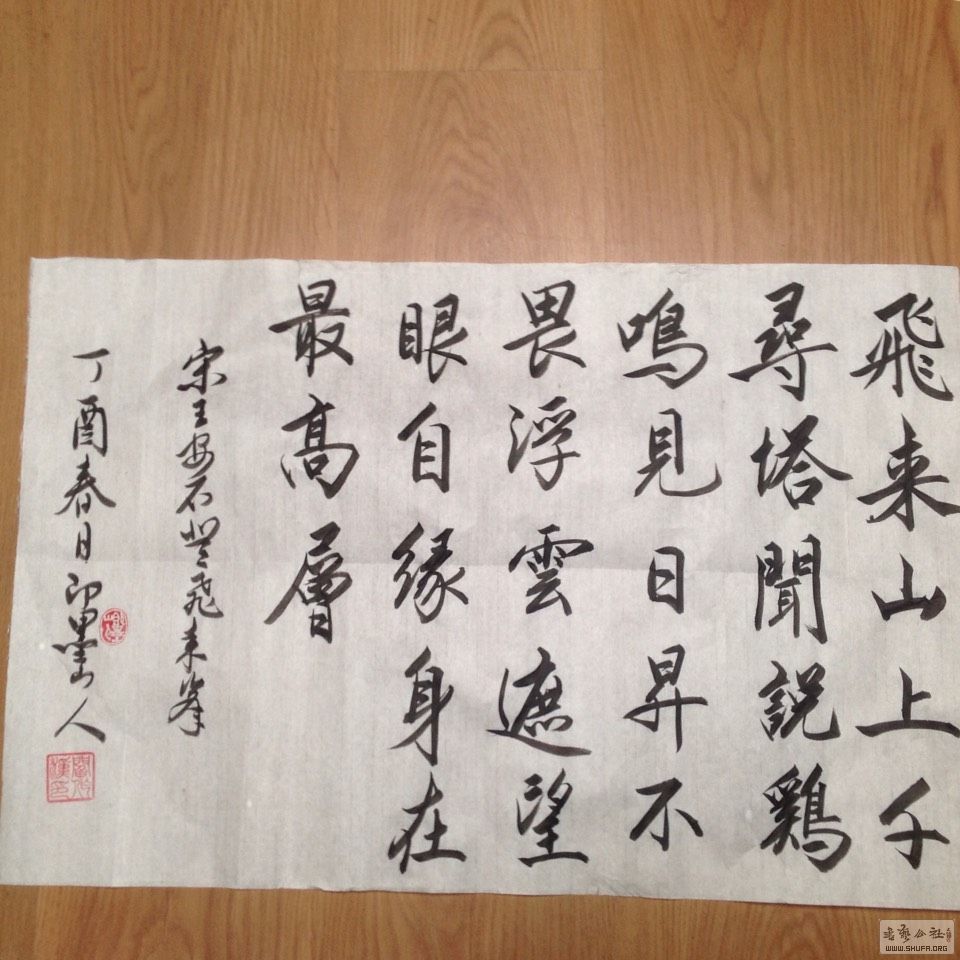 飛来山上千
尋塔聞説鷄
鳴見日昇不
畏浮雲遮望
眼自縁身在
最高層
宋王安石登飛来峯
丁酉春日印墨山人
书艺公社
WWW.SHUFA.ORG